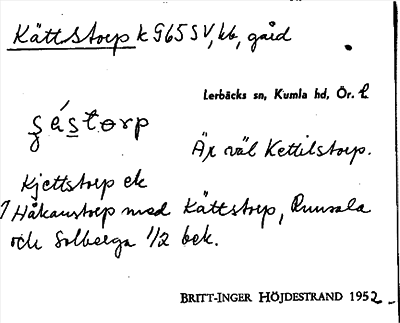 Kättstorp k G65 SV, kb, gård
Lerbäcks sn, Kumla hd, Ör. l
şástorp
Är väl Kettilstorp.
Kjettstorp ek
1 Håkanstorp med Kättstorp, Runsala
och Solberga 1/2 bek.
BRITT-INGER HÖJDESTRAND 1952